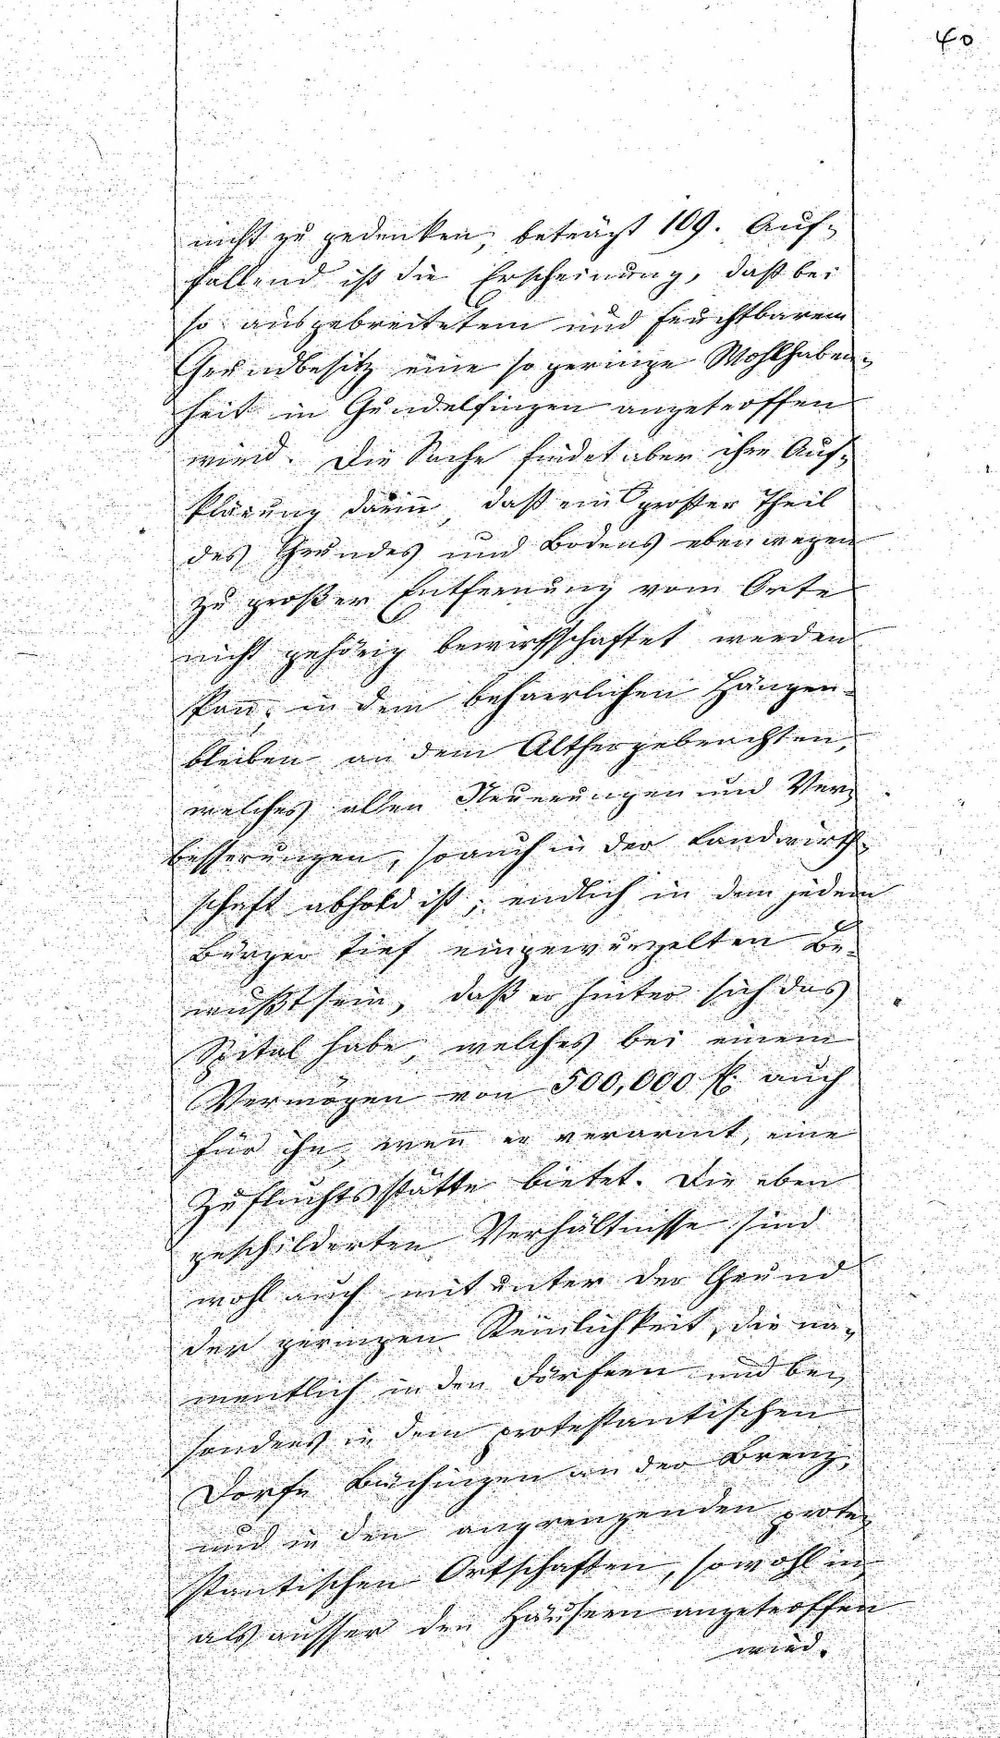 40
nicht zu gedenken, beträgt 109. Auf-
fallend ist die Erscheinung, daß bei
so ausgebreitetem und fruchtbarem
Grundbesitz eine so geringe Wohlhaben-
heit in Gundelfingen angetroffen
wird. Die Sache findet aber ihre Auf-
klärung darin̄, daß ein großer Theil
des Grundes und Bodens eben wegen
zu großer Entfernung vom Orte
nicht gehörig bewirthschaftet werden
kan̄; in dem beharrlichen Hängen-
bleiben an dem Althergebrachten,
welches allen Neuerungen und Ver-
besserungen, so auch in der Landwirth-
schaft abhold ist; endlich in dem jedem
Bürger tief eingewurzelten Be-
wußtsein, daß er hinter sich das
Spital habe, welches bei einem
Vermögen von 500,000 fl. auch
für ihn, wen̄ er verarmt, eine
Zufluchtsstätte bietet. Die eben
geschilderten Verhältnisse sind
wohl auch mit unter der Grund
der geringen Reinlichkeit, die na-
mentlich in den Dörfern und be-
sonders in dem protestantischen
Dorfe Bächingen an der Brenz,
und in den angrenzenden prote-
stantischen Ortschaften, sowohl in
als ausser den Häusern angetroffen
wird.